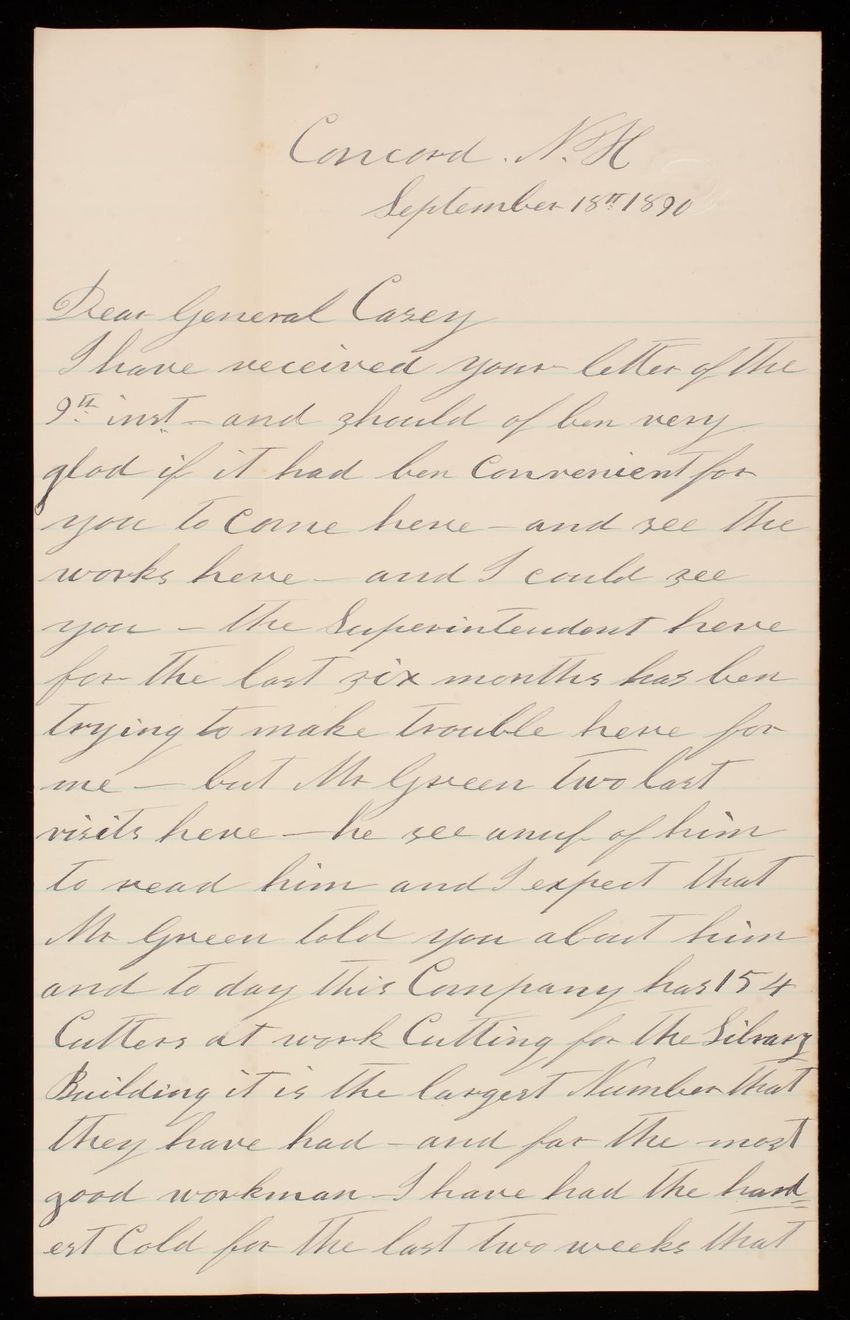 Concord. N. H
September 18th 1890
Dear General Casey
I have received your letter of the
9th inst - and should of ben very
glad if it had ben convenient for
you to come here - and see the
works here - and I could see
you - the Superintendent here
for the last six months has ben
trying to make trouble here for
me - but Mr Green two last
visits here - he see anuf of him
to read him and I expect that
Mr Green told you about him
and to day this Company has 154
Cutters at work Cutting for the Library
Building it is the largest Number that
they have had - and far the most
good workman - I have had the hard
est Cold for the last two weeks that